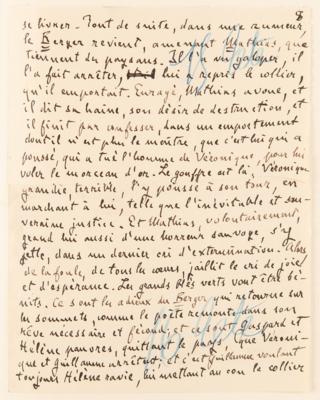 8
se livrer. Tout de suite, dans une rumeur,
le Berger revient, amenant Mathias, que
tiennent des paysans. Il l'a vu galoper, il
l'a fait arrêter, lui a repris le collier,
qu'il emportait. Enragé, Mathias avoue, et
il dit sa haine, son désir de destruction, et
il finit par confesser, dans un emportement
dont il n'est plus le maître, que c'est lui qui a
poussé, qui a tué l'homme de Véronique, pour lui
voler le morceau d'or. Le gouffre est là, Véronique
grandie, terrible, l'y pousse à son tour, en
marchant à lui, telle que l'inévitable et sou-
veraine justice. Et Mathias, volontairement,
grand lui aussi d'une horreur sauvage, s'y
jette, dans un dernier cri d'extermination. Alors
de la foule, de tous les cœurs, jaillit le cri de joie
et d'espérance. Les grands blés verts vont être bé-
nits. Ce sont les adieux du Berger qui retourne sur
les sommets, comme le poète remonte dans son
rêve nécessaire et fécond, et ce sont Gaspard et
Hélène pauvres, quittant le pays, que Véroni-
que et Guillaume arrêtent, et c'est Guillaume voulant
toujours Hélène ravie, lui mettant au cou le collier